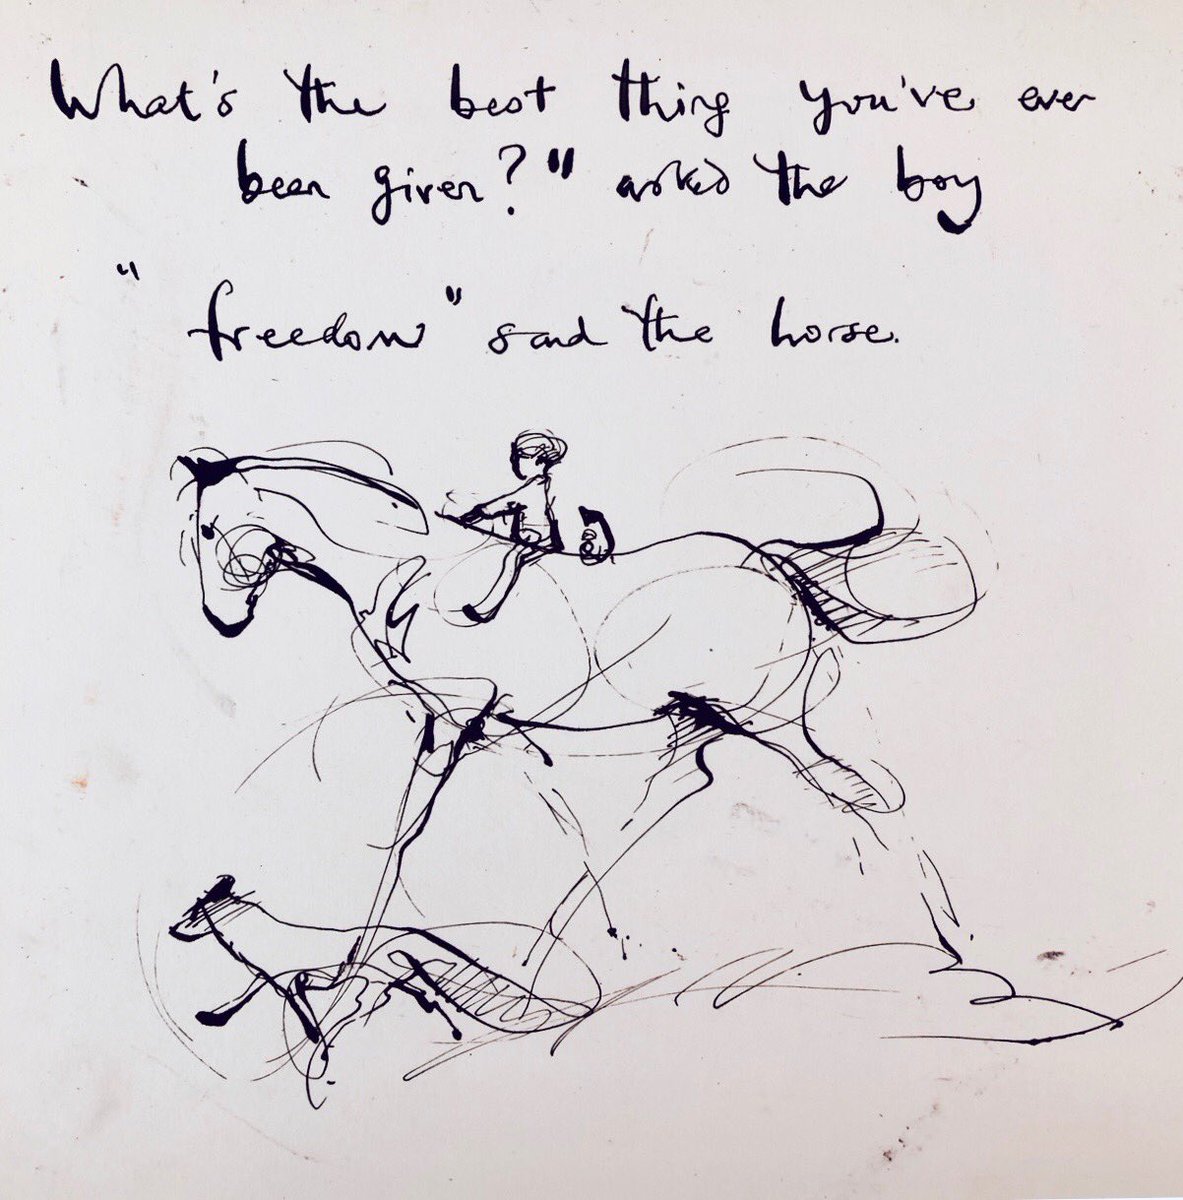 What's the best thing you've ever
been given?" asked the boy
"freedom" said the horse.